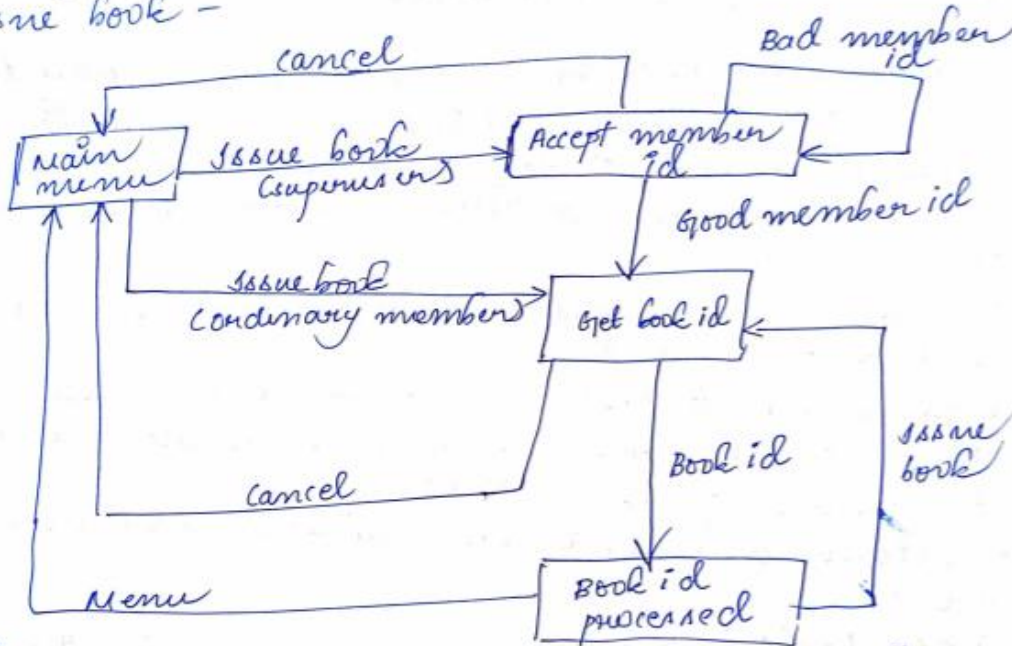 sue book -
cancel
Bad member
id
Main
menu
Issue book
(superusers)
Accept member
id
Good member id
Issue book
(ordinary members)
Get book id
Issue
book
Book id
cancel
Menu
Book id
processed